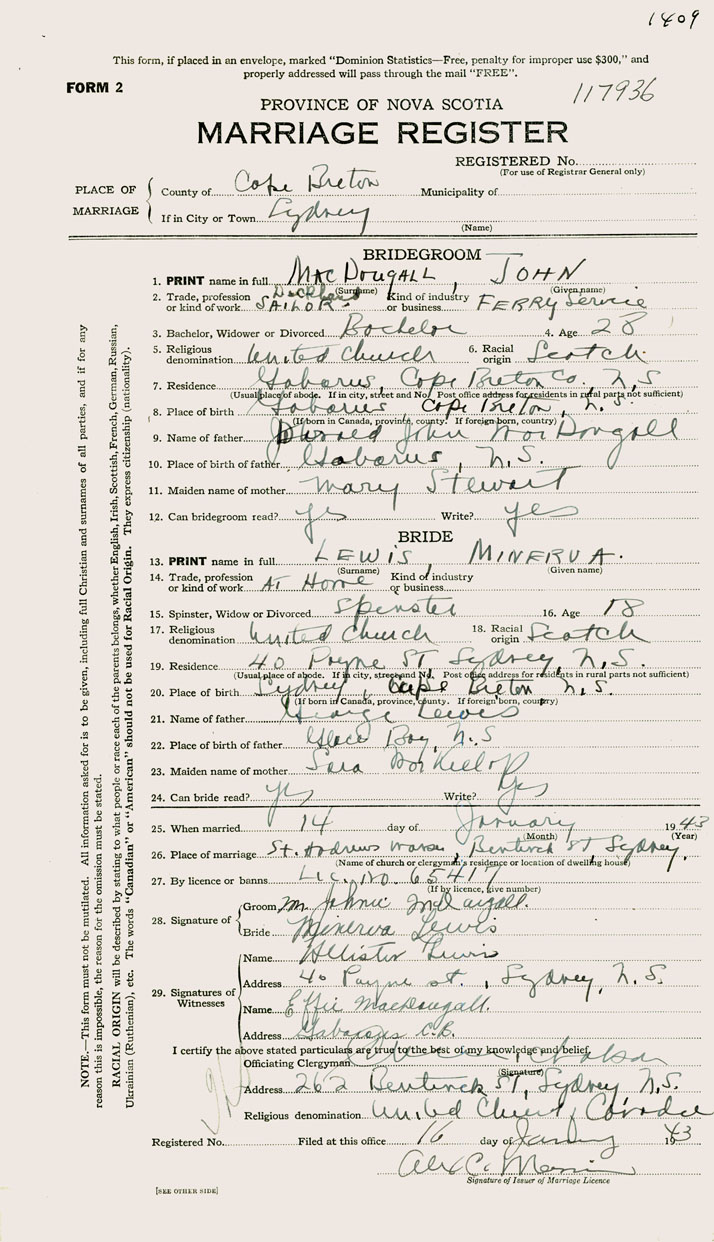 1409
This form, if placed in an envelope, marked "Dominion Statistics—Free, penalty for improper use $300," and
properly addressed will pass through the mail "FREE".
FORM 2
117936
PROVINCE OF NOVA SCOTIA
MARRIAGE REGISTER
REGISTERED No.
(For use of Registrar General only)
PLACE OF MARRIAGE
County of Cape Breton Municipality of
If in City or Town Sydney
(Name)
BRIDEGROOM
1. PRINT name in full MACDOUGALL, JOHN
(Surname) (Given name)
2. Trade, profession or kind of work Deckhand SAILOR. Kind of industry or business FERRY Service
3. Bachelor, Widower or Divorced Bachelor 4. Age 28
5. Religious denomination United Church 6. Racial origin Scotch
7. Residence Gabarus, Cape Breton Co. N.S
(Usual place of abode. If in city, street and No. Post office address for residents in rural parts not sufficient)
8. Place of birth Gabarus Cape Breton, N.S.
(If born in Canada, province, county. If foreign born, country)
9. Name of father John MacDougall
10. Place of birth of father Gabarus, N.S.
11. Maiden name of mother Mary Stewart
12. Can bridegroom read? yes Write? yes
BRIDE
13. PRINT name in full LEWIS MINERVA.
(Surname) (Given name)
14. Trade, profession or kind of work AT Home Kind of industry or business
15. Spinster, Widow or Divorced Spinster 16. Age 18
17. Religious denomination United Church 18. Racial origin Scotch
19. Residence 40 Payne ST Sydney, N.S.
(Usual place of abode. If in city, street and No. Post office address for residents in rural parts not sufficient)
20. Place of birth Sydney, Cape Breton N.S.
(If born in Canada, province, county. If foreign born, country)
21. Name of father George Lewis
22. Place of birth of father Glace Bay, N.S
23. Maiden name of mother Sara MacKillop
24. Can bride read? yes Write? Yes
25. When married 14 day of January 1943
(Month) (Year)
26. Place of marriage St. Andrews Manse, Bentinck ST Sydney,
(Name of church or clergyman's residence or location of dwelling house)
27. By licence or banns Lic. No. 65417
(If by licence, give number)
28. Signature of
Groom M. Johnie McDougall.
Bride Minerva Lewis
29. Signatures of Witnesses
Name Allister Lewis
Address 40 Payne st., Sydney, N.S.
Name Effie MacDougall.
Address Gabarus C.B.
I certify the above stated particulars are true to the best of my knowledge and belief.
Officiating Clergyman
(Signature)
Address 262 Bentinck ST, Sydney N.S.
Religious denomination United Church, Canada
Registered No. Filed at this office 16 day of January 1943
Alex C.
Signature of Issuer of Marriage Licence
[SEE OTHER SIDE]
NOTE.—This form must not be mutilated. All information asked for is to be given, including full Christian and surnames of all parties, and if for any
reason this is impossible, the reason for the omission must be stated.
RACIAL ORIGIN will be described by stating to what people or race each of the parents belongs, whether English, Irish, Scottish, French, German, Russian,
Ukrainian (Ruthenian), etc. The words "Canadian" or "American" should not be used for Racial Origin. They express citizenship (nationality).